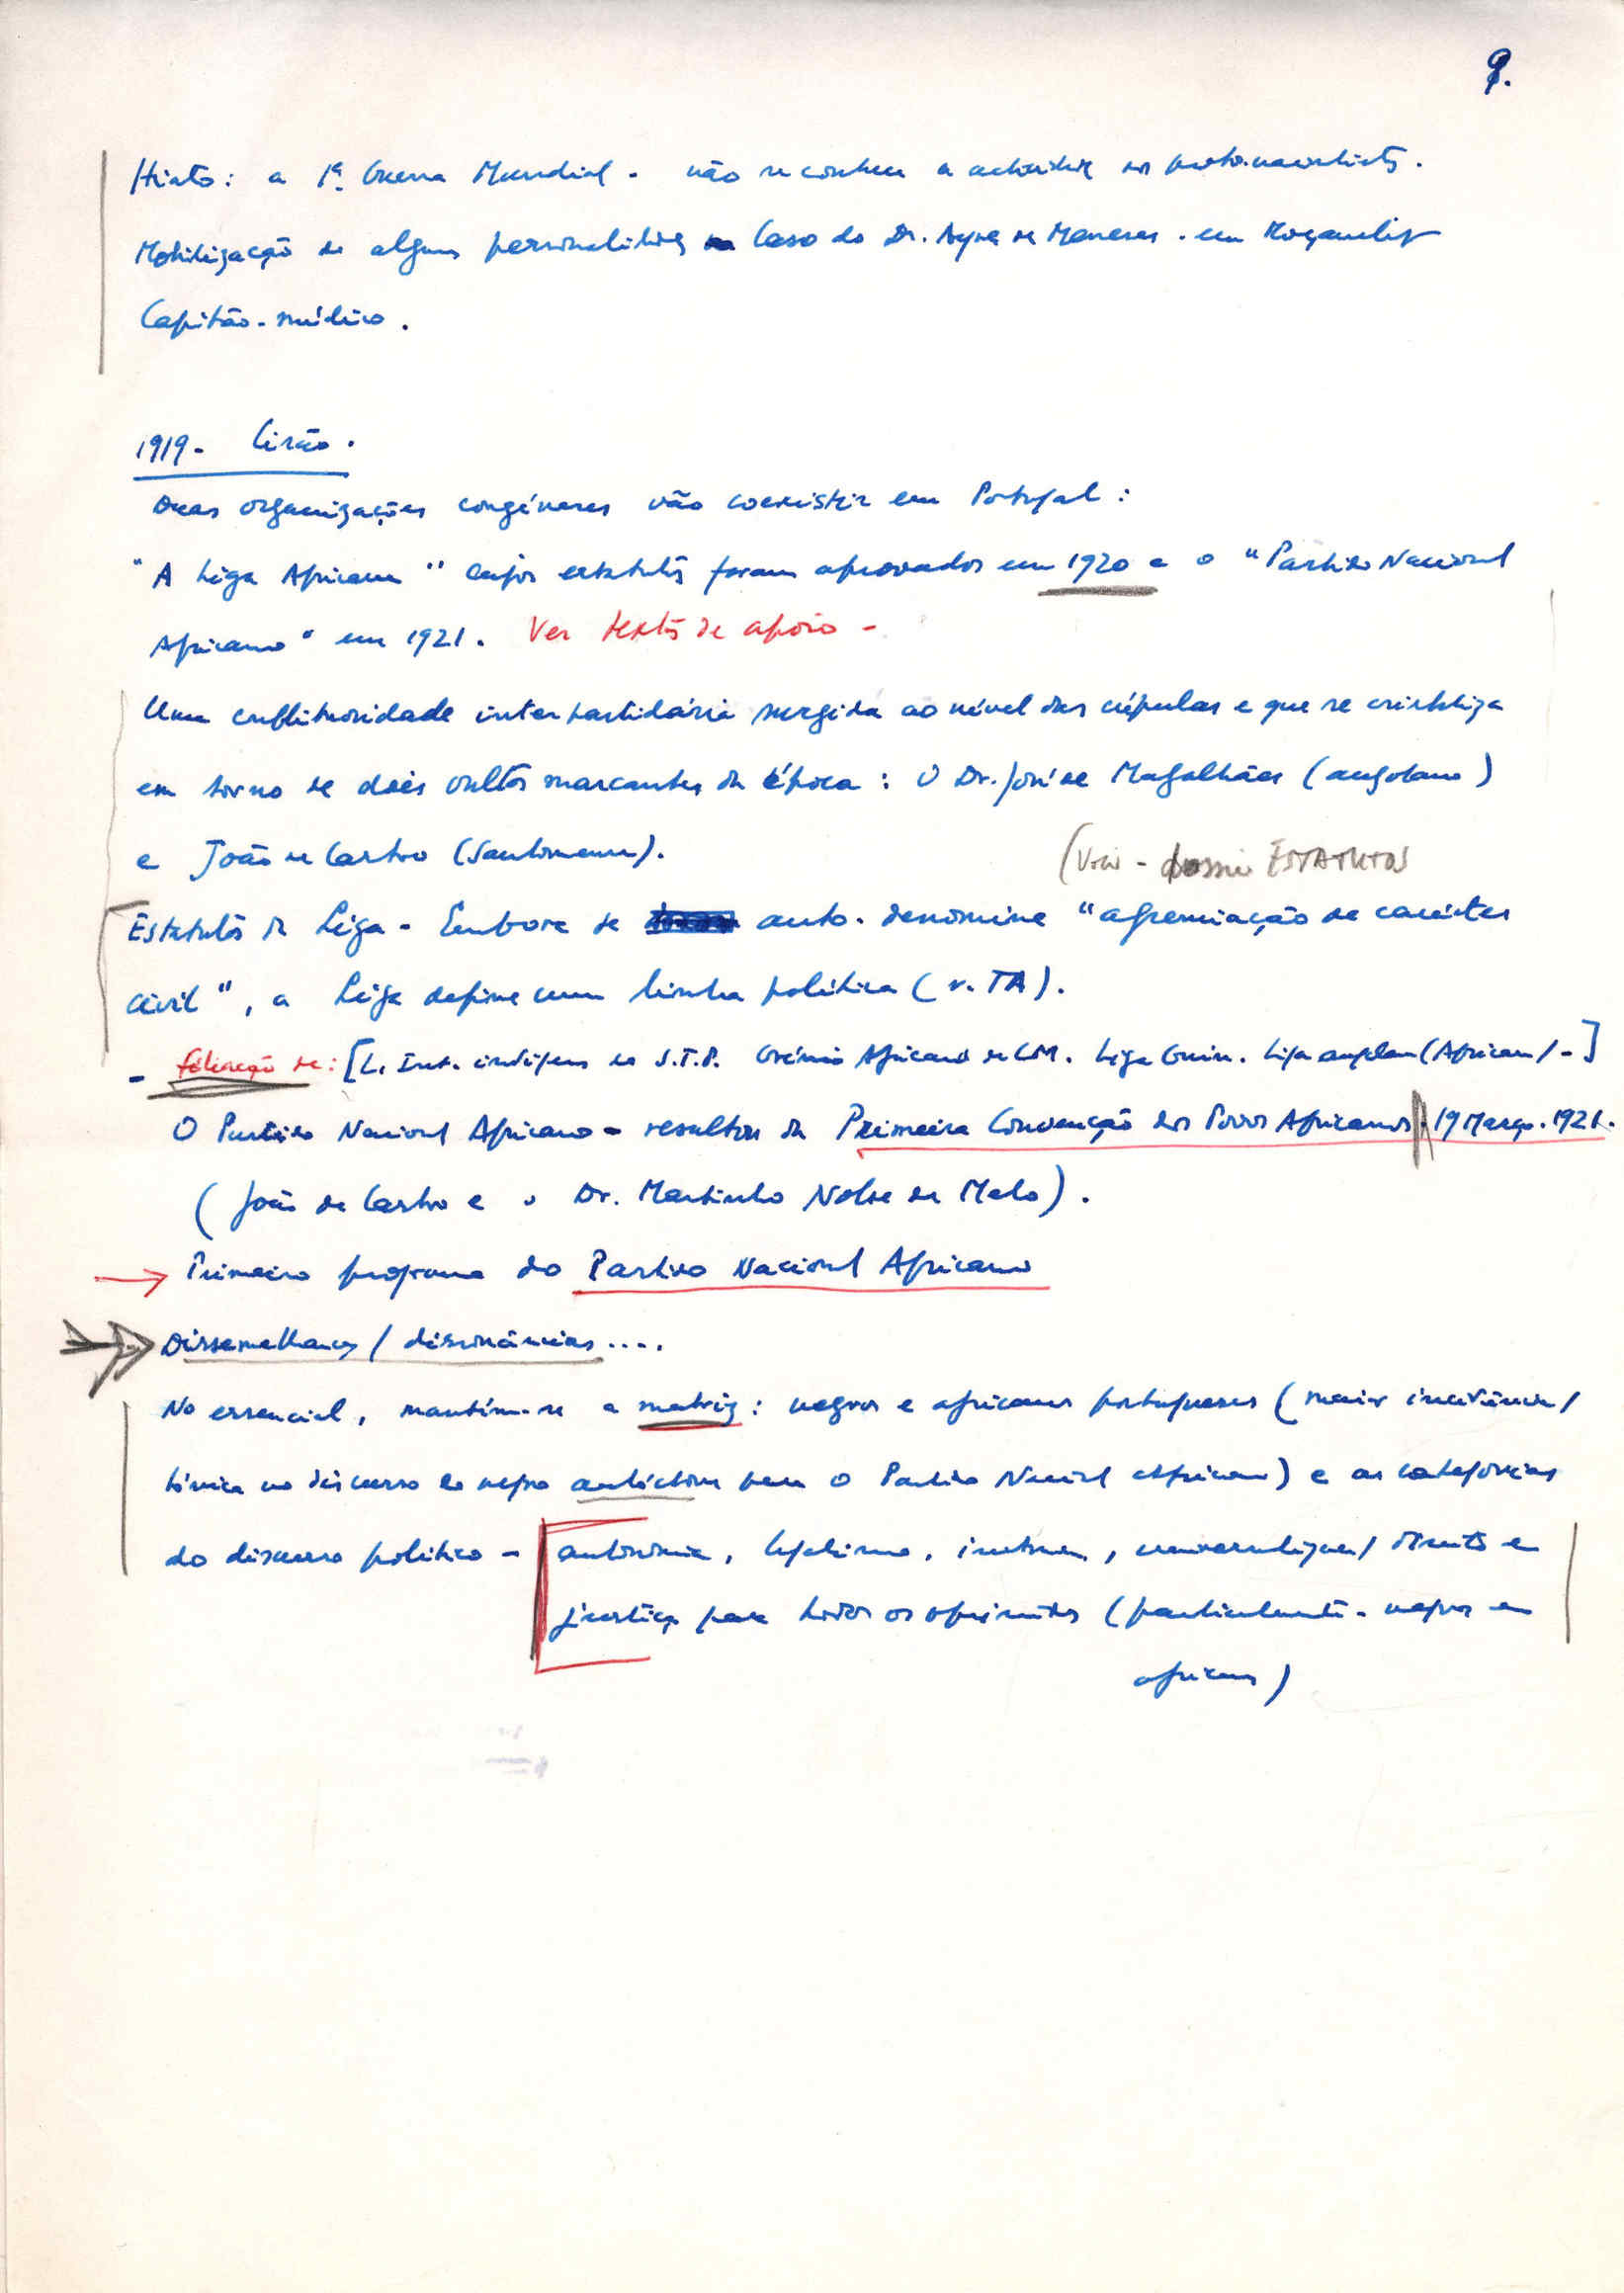 9.
Hiato: a 1ª Guerra Mundial - não se conhece a actividade dos proto-nacionalistas.
Mobilização de algumas personalidades Caso do Dr. Ayres de Menezes - em Moçambique
Capitão-médico.
1919 - Cisão.
Duas organizações congéneres vão coexistir em Portugal:
"A Liga Africana" cujos estatutos foram aprovados em 1920 e o "Partido Nacional
Africano" em 1921. Ver textos de apoio -
Uma conflituosidade interpartidária surgida ao nível das cúpulas e que se cristaliza
em torno de dois vultos marcantes da época: O Dr. José de Magalhães (angolano)
e João de Castro (Santomense).
(Voir - dossier ESTATUTOS
Estatutos da Liga - Embora se auto-denomine "agremiação de carácter
civil", a Liga define uma linha política (v. TA).
- federação de: [L. Int. indígenas de S.T.P. Grémio Africano de LM. Liga Guin. Liga angolana (Africana/-]
O Partido Nacional Africano - resultou da Primeira Convenção dos Povos Africanos 19 Março. 1921.
(João de Castro e o Dr. Martinho Nobre de Melo).
Primeiro programa do Partido Nacional Africano
Dissemelhanças / dissonâncias ....
No essencial, mantém-se a matriz: negros e africanos portugueses (maior incidência/
tónica no discurso do negro autóctone para o Partido Nacional Africano) e as categorias
do discurso político - autonomia, legalismo, direito e
justiça para todos os oprimidos (particularmente - negros e
africanos)